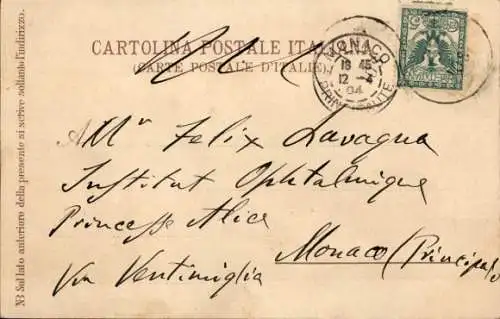 CARTOLINA POSTALE ITALIANA
(CARTE POSTALE D'ITALIE)
MONACO
18 45
12 - 4
04
PRINCIPAUTE
A Mr Felix Lavagna
Institut Ophtalmique
Princesse Alice
Monaco (Principato
Via Ventimiglia
NB Sul lato anteriore della presente si scrive soltanto l'indirizzo.